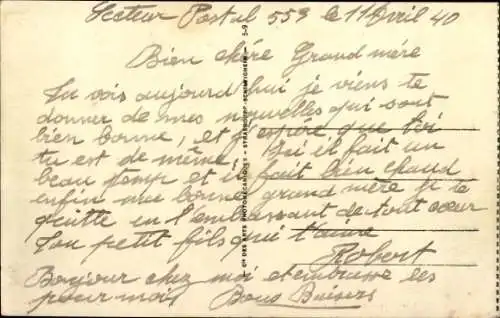 Secteur Postal 553 le 11 Avril 40
Bien chére Grand mère
Tu vois aujourd'hui je viens te
donner de mes nouvelles qui sont
bien bonne, et j'espère que toi
tu est de même, Ici il fait un
beau temp et il fait bien chaud
enfin ma bonne grand mère je te
quitte en l'embrassant de tout cœur
Ton petit fils qui t'aime
Robert
Bonjour chez moi et embrasse les
pour moi, Bons Baisers
Cie DES ARTS PHOTOMECANIQUES - STRASBOURG-SCHILTIGHEIM 5-9